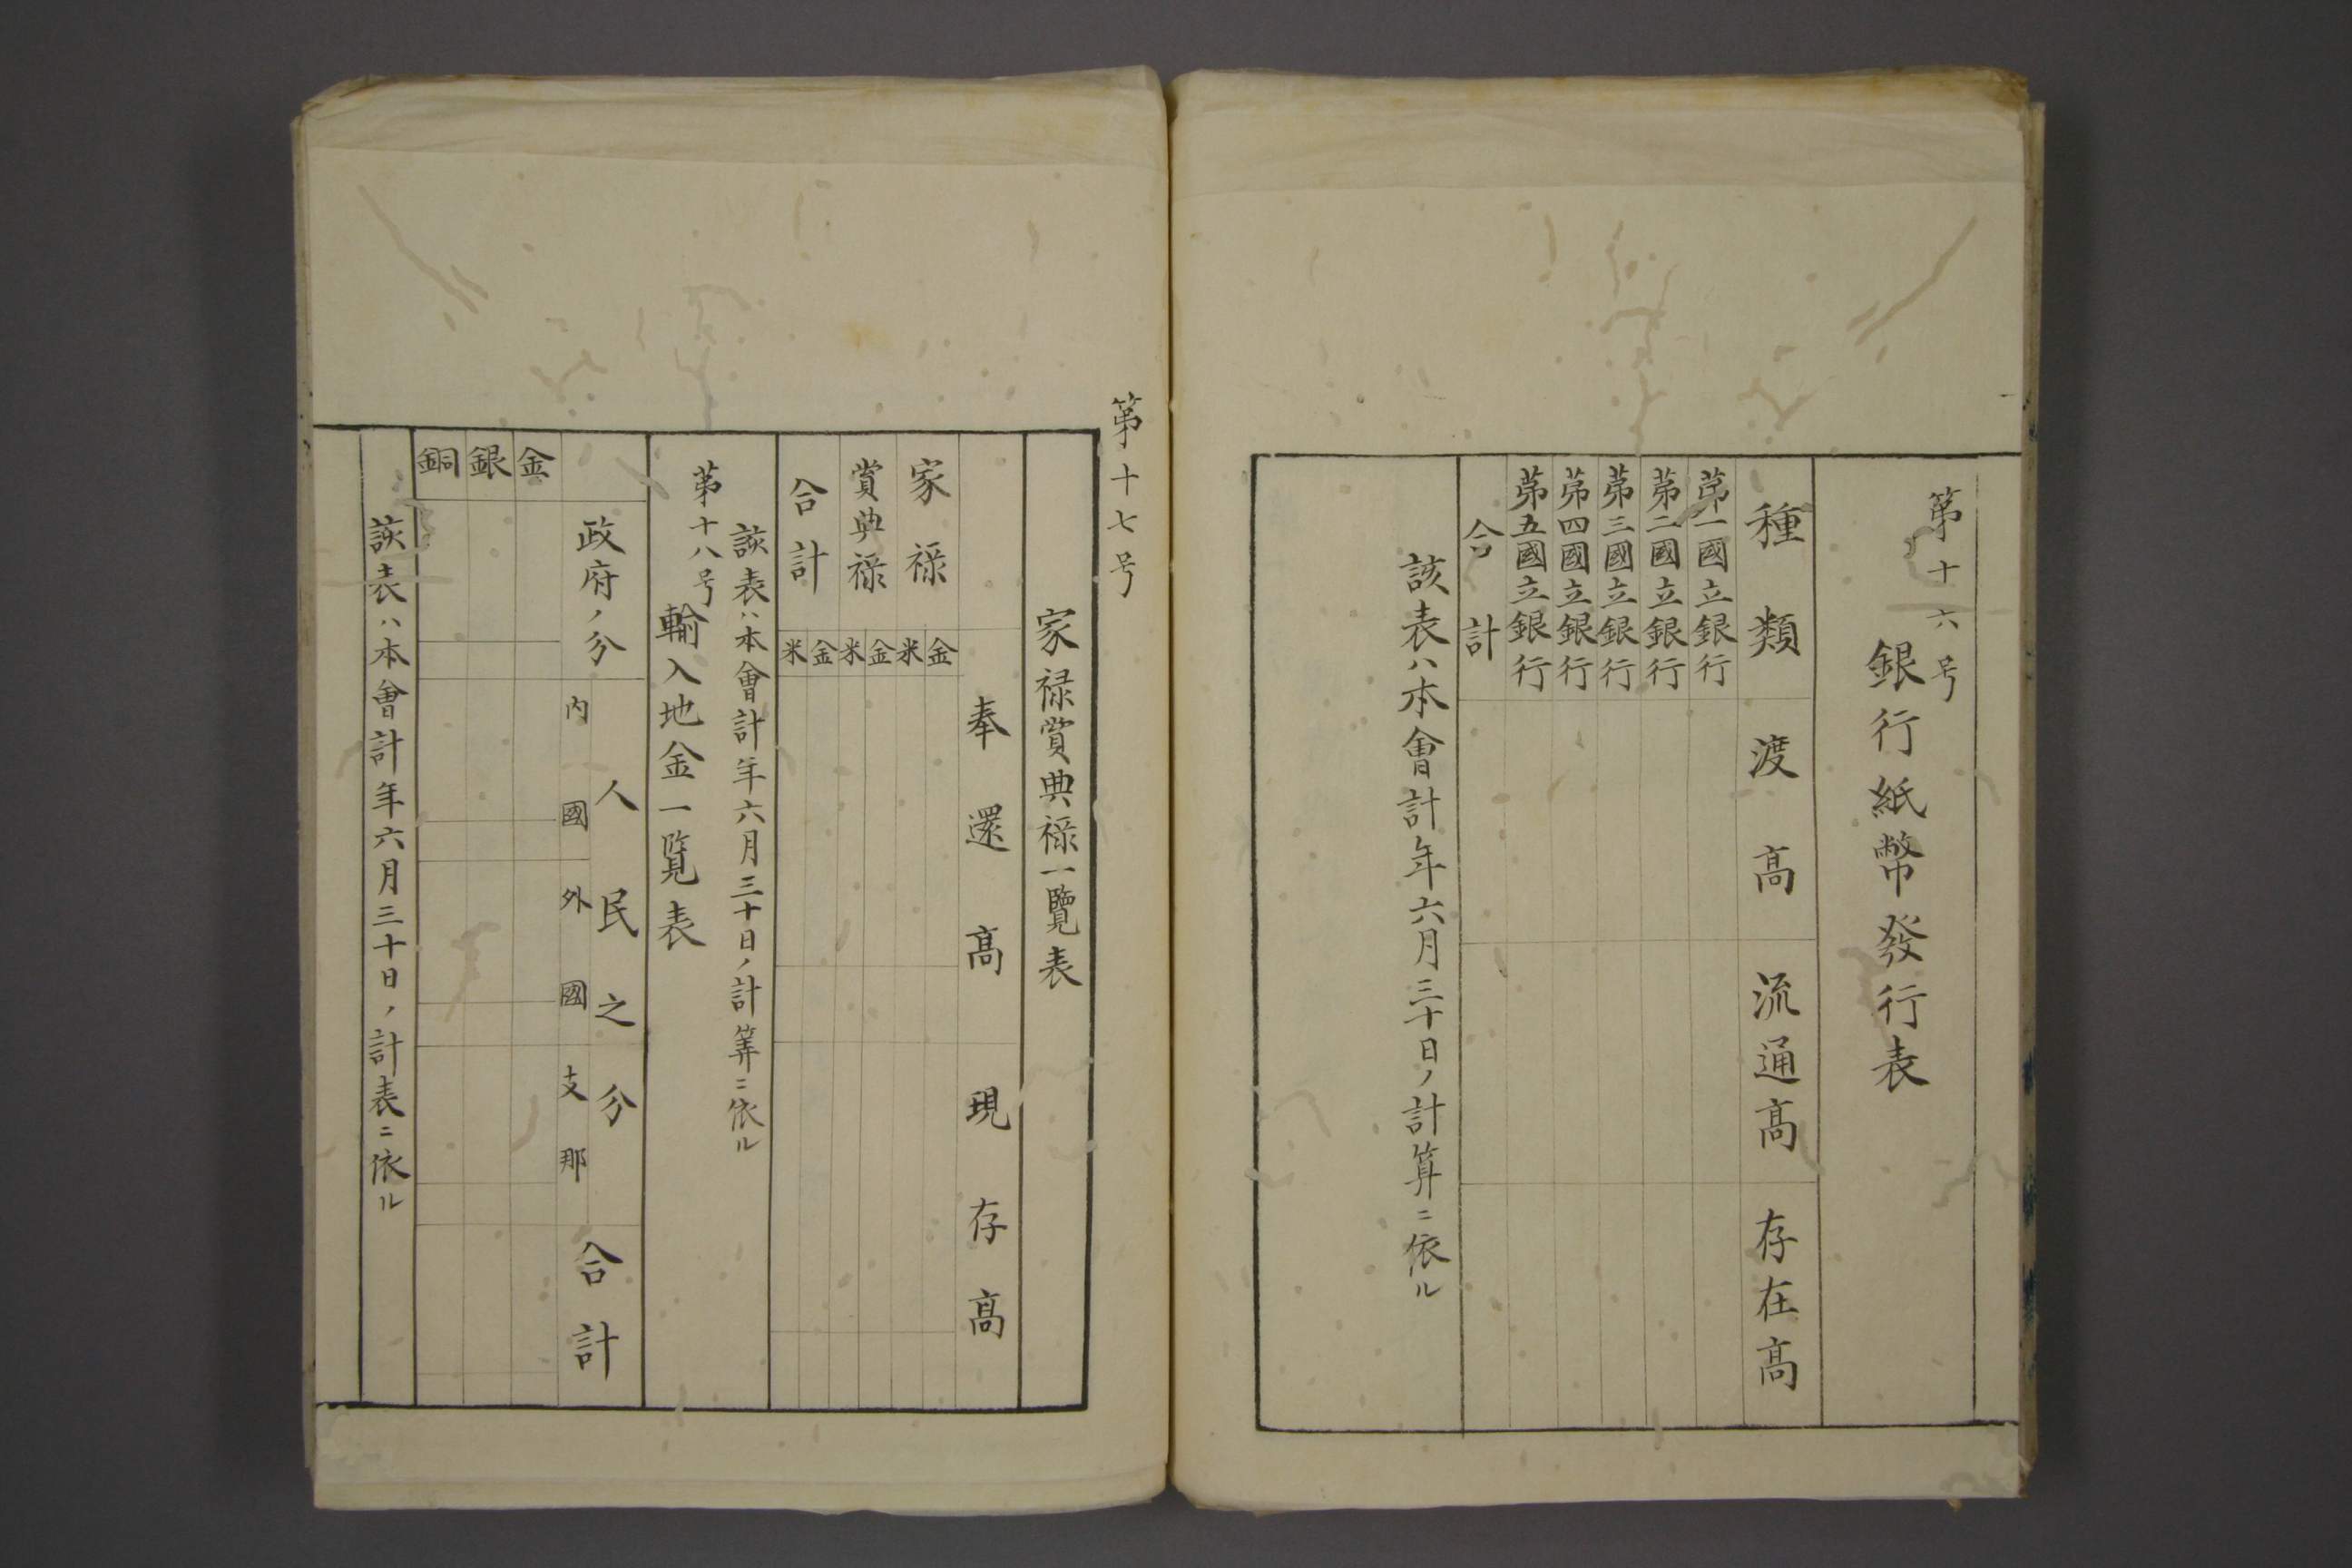 第十六号
銀行紙幣發行表
種類 渡高 流通高 存在高
第一國立銀行
第二國立銀行
第三國立銀行
第四國立銀行
第五國立銀行
合計
該表ハ本會計年六月三十日ノ計算ニ依ル
第十七号
家禄賞典禄一覽表
奉還高 現存高
家禄 金 米
賞典禄 金 米
合計 金 米
該表ハ本會計年六月三十日ノ計筭ニ依ル
第十八号
輸入地金一覧表
政府ノ分 人民之分 合計
内國 外國 支那
金
銀
銅
該表ハ本會計年六月三十日ノ計表ニ依ル